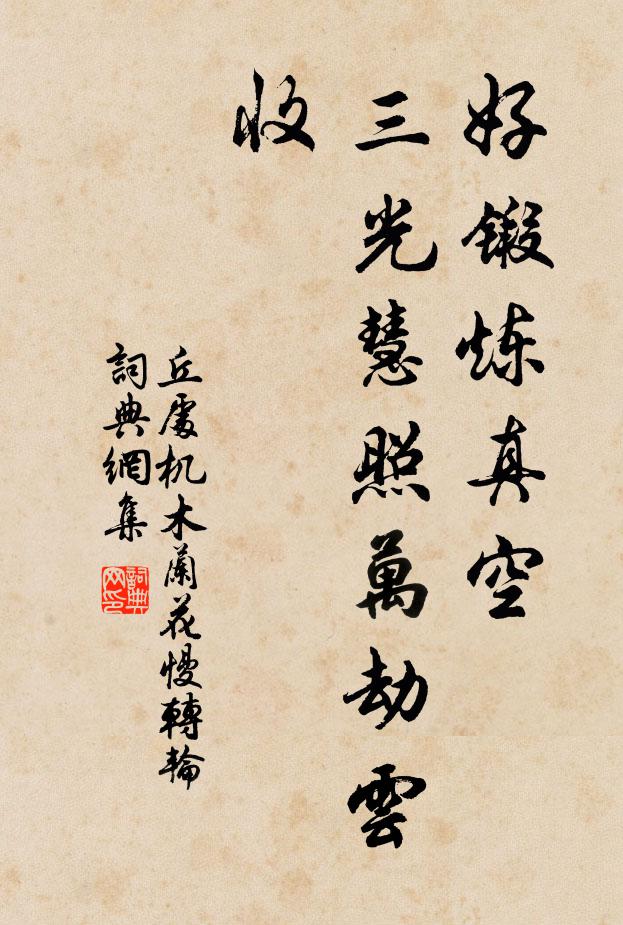 好鍛炼真空
三光慧照萬劫雲
收
丘處机木蘭花慢轉輪
詞典網集
詞典网印